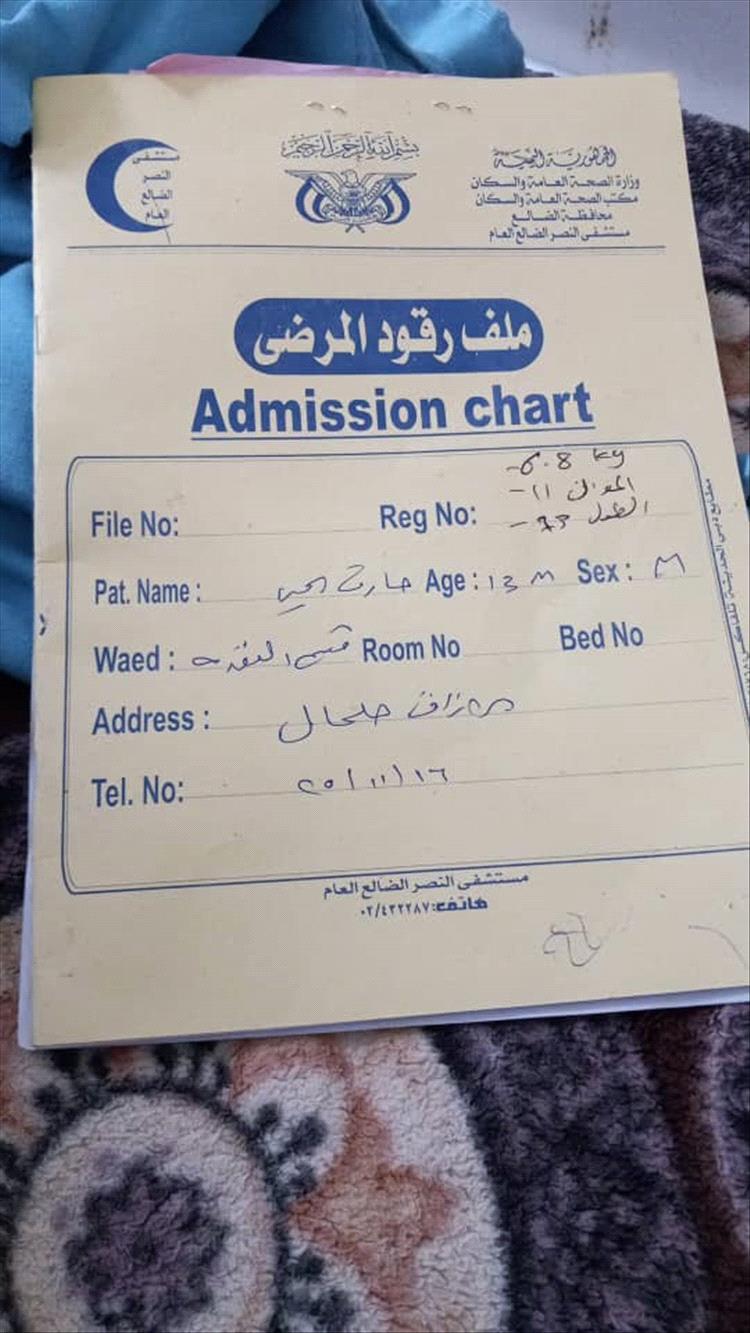 مستشفى
النصر
الضالع
العام
بسم الله الرحمن الرحيم
الجمهورية اليمنية
وزارة الصحة العامة والسكان
مكتب الصحة العامة والسكان
محافظة الضالع
مستشفى النصر الضالع العام
ملف رقود المرضى
Admission chart
6.8 kg
المواك 11 -
الطول 73 -
File No:
Reg No:
Pat. Name :
Age : 13 m Sex : M
Waed : قسم
Room No
Bed No
Address :
Tel. No: ٢٥/١١/١٦
مستشفى النصر الضالع العام
هاتف: ٠٢/٤٣٢٢٨٧